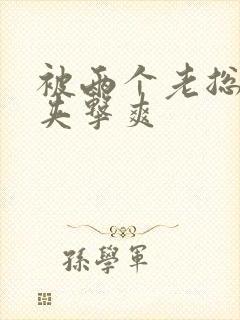 被两个老总
夹击爽
孫學軍